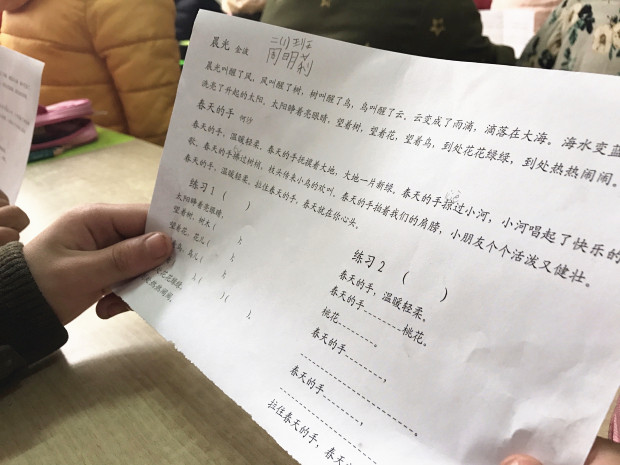 晨光 金波
二(1)班
周明莉
晨光叫醒了风，风叫醒了树，树叫醒了鸟，鸟叫醒了云，云变成了雨滴，滴落在大海。海水变蓝
洗亮了升起的太阳，太阳睁着亮眼睛，望着树，望着花，望着鸟，到处花花绿绿，到处热热闹闹。
春天的手 何佳
春天的手，温暖轻柔。春天的手抚摸着大地，大地一片新绿。春天的手掠过小河，小河唱起了快乐的
歌，春天的手掠过树梢，枝头传来小鸟的欢叫，春天的手拍着我们的肩膀，小朋友个个活泼又健壮。
春天的手，温暖轻柔。拉住春天的手，春天就在你心头。
练习1（ ）
太阳睁着亮眼睛，
望着树，树大（ ），
望着花，花儿（ ），
鸟，鸟儿（ ），
花花绿绿，
热热闹闹。
练习2 （ ）
春天的手，温暖轻柔。
春天的手--------桃花。
桃花--------。
春天的手--------，
春天的手--------，
拉住春天的手，春天